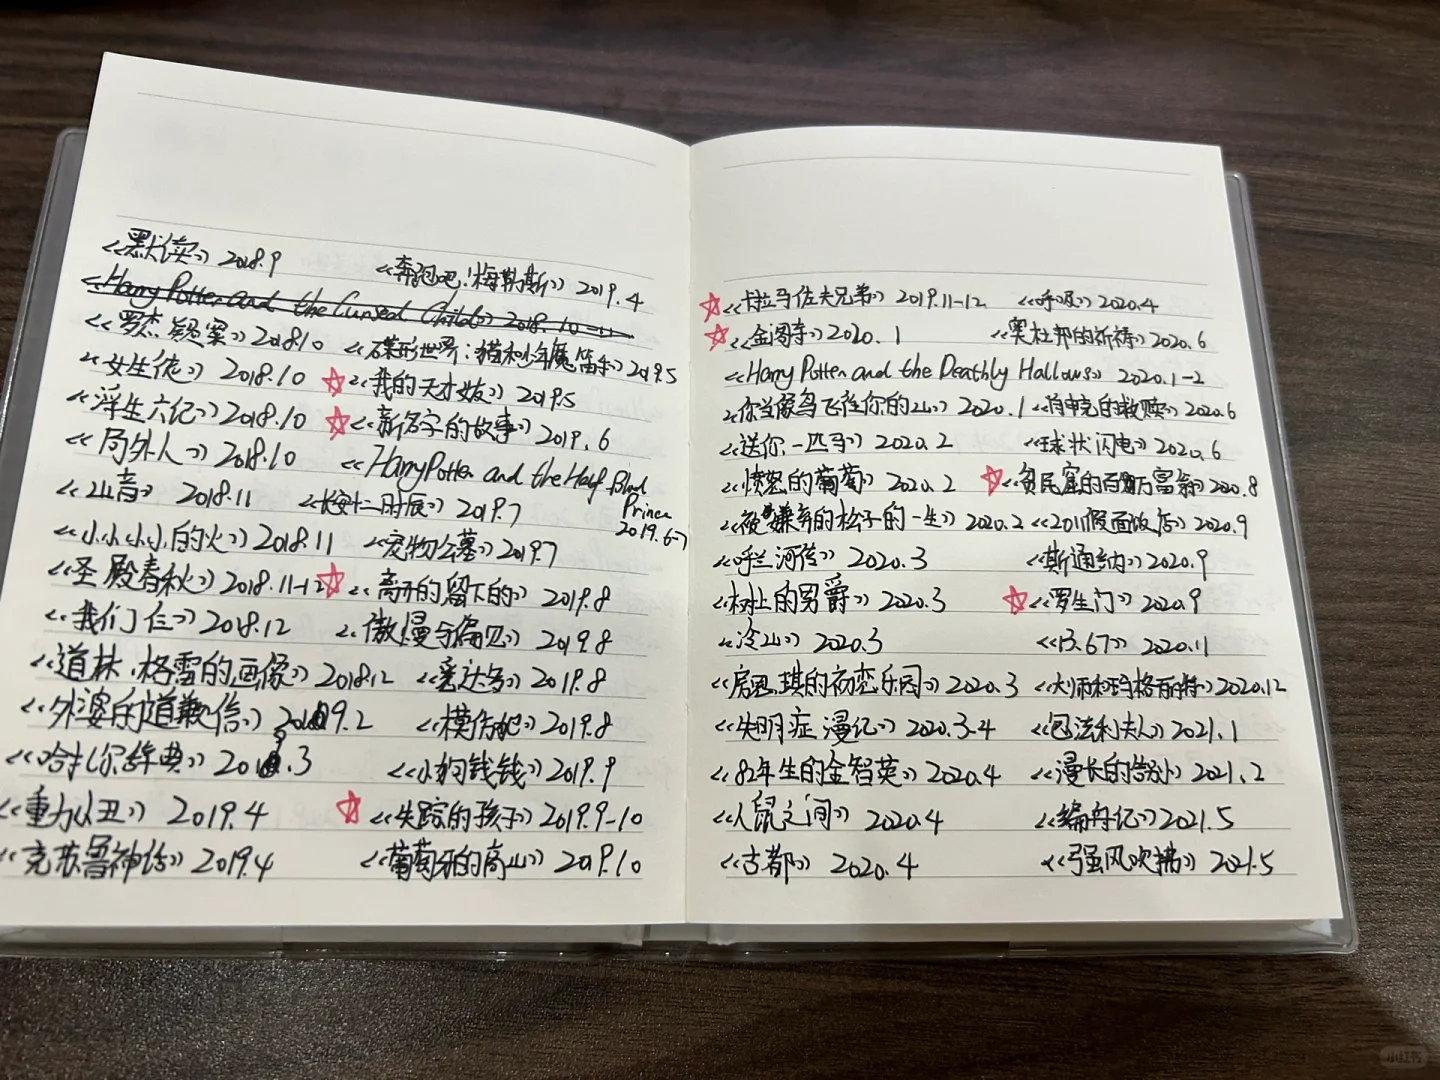 《默读》2018.9
《Harry Potter and the Cursed Child》2018.10-11
《罗杰疑案》2018.10
《女生徒》2018.10
《浮生六记》2018.10
《局外人》2018.10
《山音》2018.11
《小小小小的火》2018.11
《圣殿春秋》2018.11-12
《我们仨》2018.12
《道林·格雷的画像》2018.12
《外婆的道歉信》2019.2
《哈扎尔辞典》2019.3
《重力小丑》2019.4
《克苏鲁神话》2019.4
《奔跑吧！梅勒斯》2019.4
《碟形世界：猫和少年魔笛手》2019.5
☆《我的天才女友》2019.5
☆《新名字的故事》2019.6
《Harry Potter and the Half Blood
Prince
2019.6-7
《长安十二时辰》2019.7
《宠物公墓》2019.7
☆《离开的留下的》2019.8
《傲慢与偏见》2019.8
《悉达多》2019.8
《模仿犯》2019.8
《小狗钱钱》2019.9
☆《失踪的孩子》2019.9-10
《葡萄牙的高山》2019.10
☆《卡拉马佐夫兄弟》2019.11-12
☆《金阁寺》2020.1
《Harry Potter and the Deathly Hallows》2020.1-2
《你当像鸟飞往你的山》2020.1
《送你一匹马》2020.2
《愤怒的葡萄》2020.2
《被嫌弃的松子的一生》2020.2
《呼兰河传》2020.3
《树上的男爵》2020.3
《冷山》2020.3
《房思琪的初恋乐园》2020.3
《失明症漫记》2020.3-4
《82年生的金智英》2020.4
《人鼠之间》2020.4
《古都》2020.4
《呼吸》2020.4
《奥杜邦的祈祷》2020.6
《肖申克的救赎》2020.6
《球状闪电》2020.6
☆《贫民窟的百万富翁》2020.8
《2011假面饭店》2020.9
《斯通纳》2020.9
☆《罗生门》2020.9
《13.67》2020.11
《大师和玛格丽特》2020.12
《包法利夫人》2021.1
《漫长的告别》2021.2
《编舟记》2021.5
《强风吹拂》2021.5
小红书